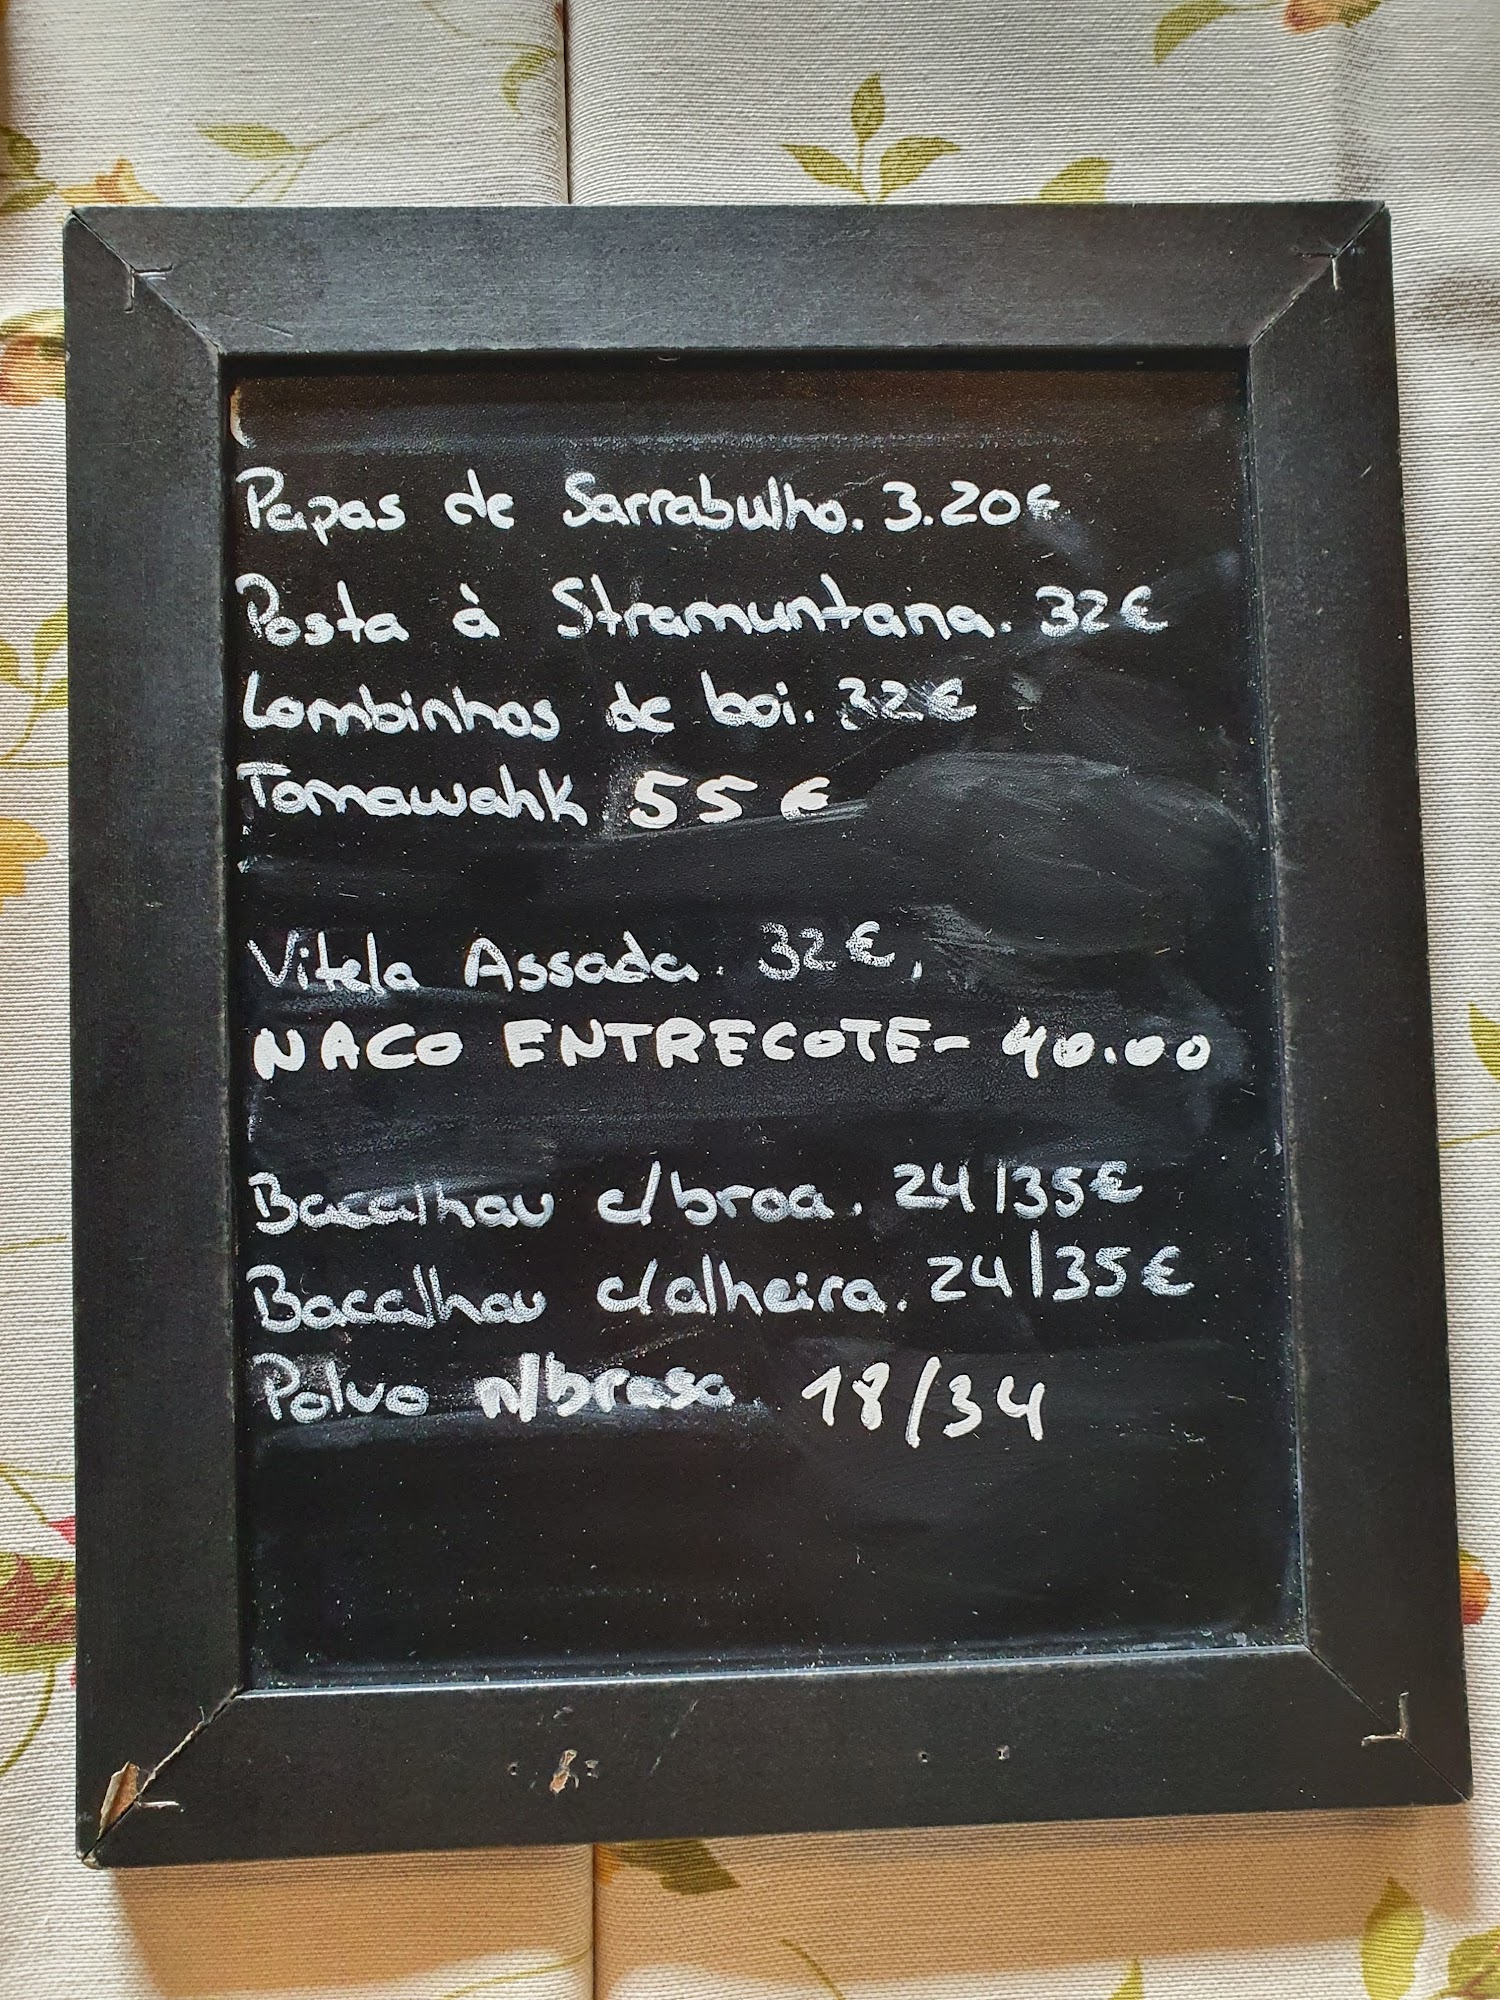 Papas de Sarrabulho. 3.20€
Posta à Stramuntana. 32€
Lombinhos de boi. 32€
Tomawahk 55 €
Vitela Assada. 32€,
NACO ENTRECOTE- 40.00
Bacalhau c/broa. 24/35€
Bacalhau c/alheira. 24/35€
Polvo n/brasa. 18/34